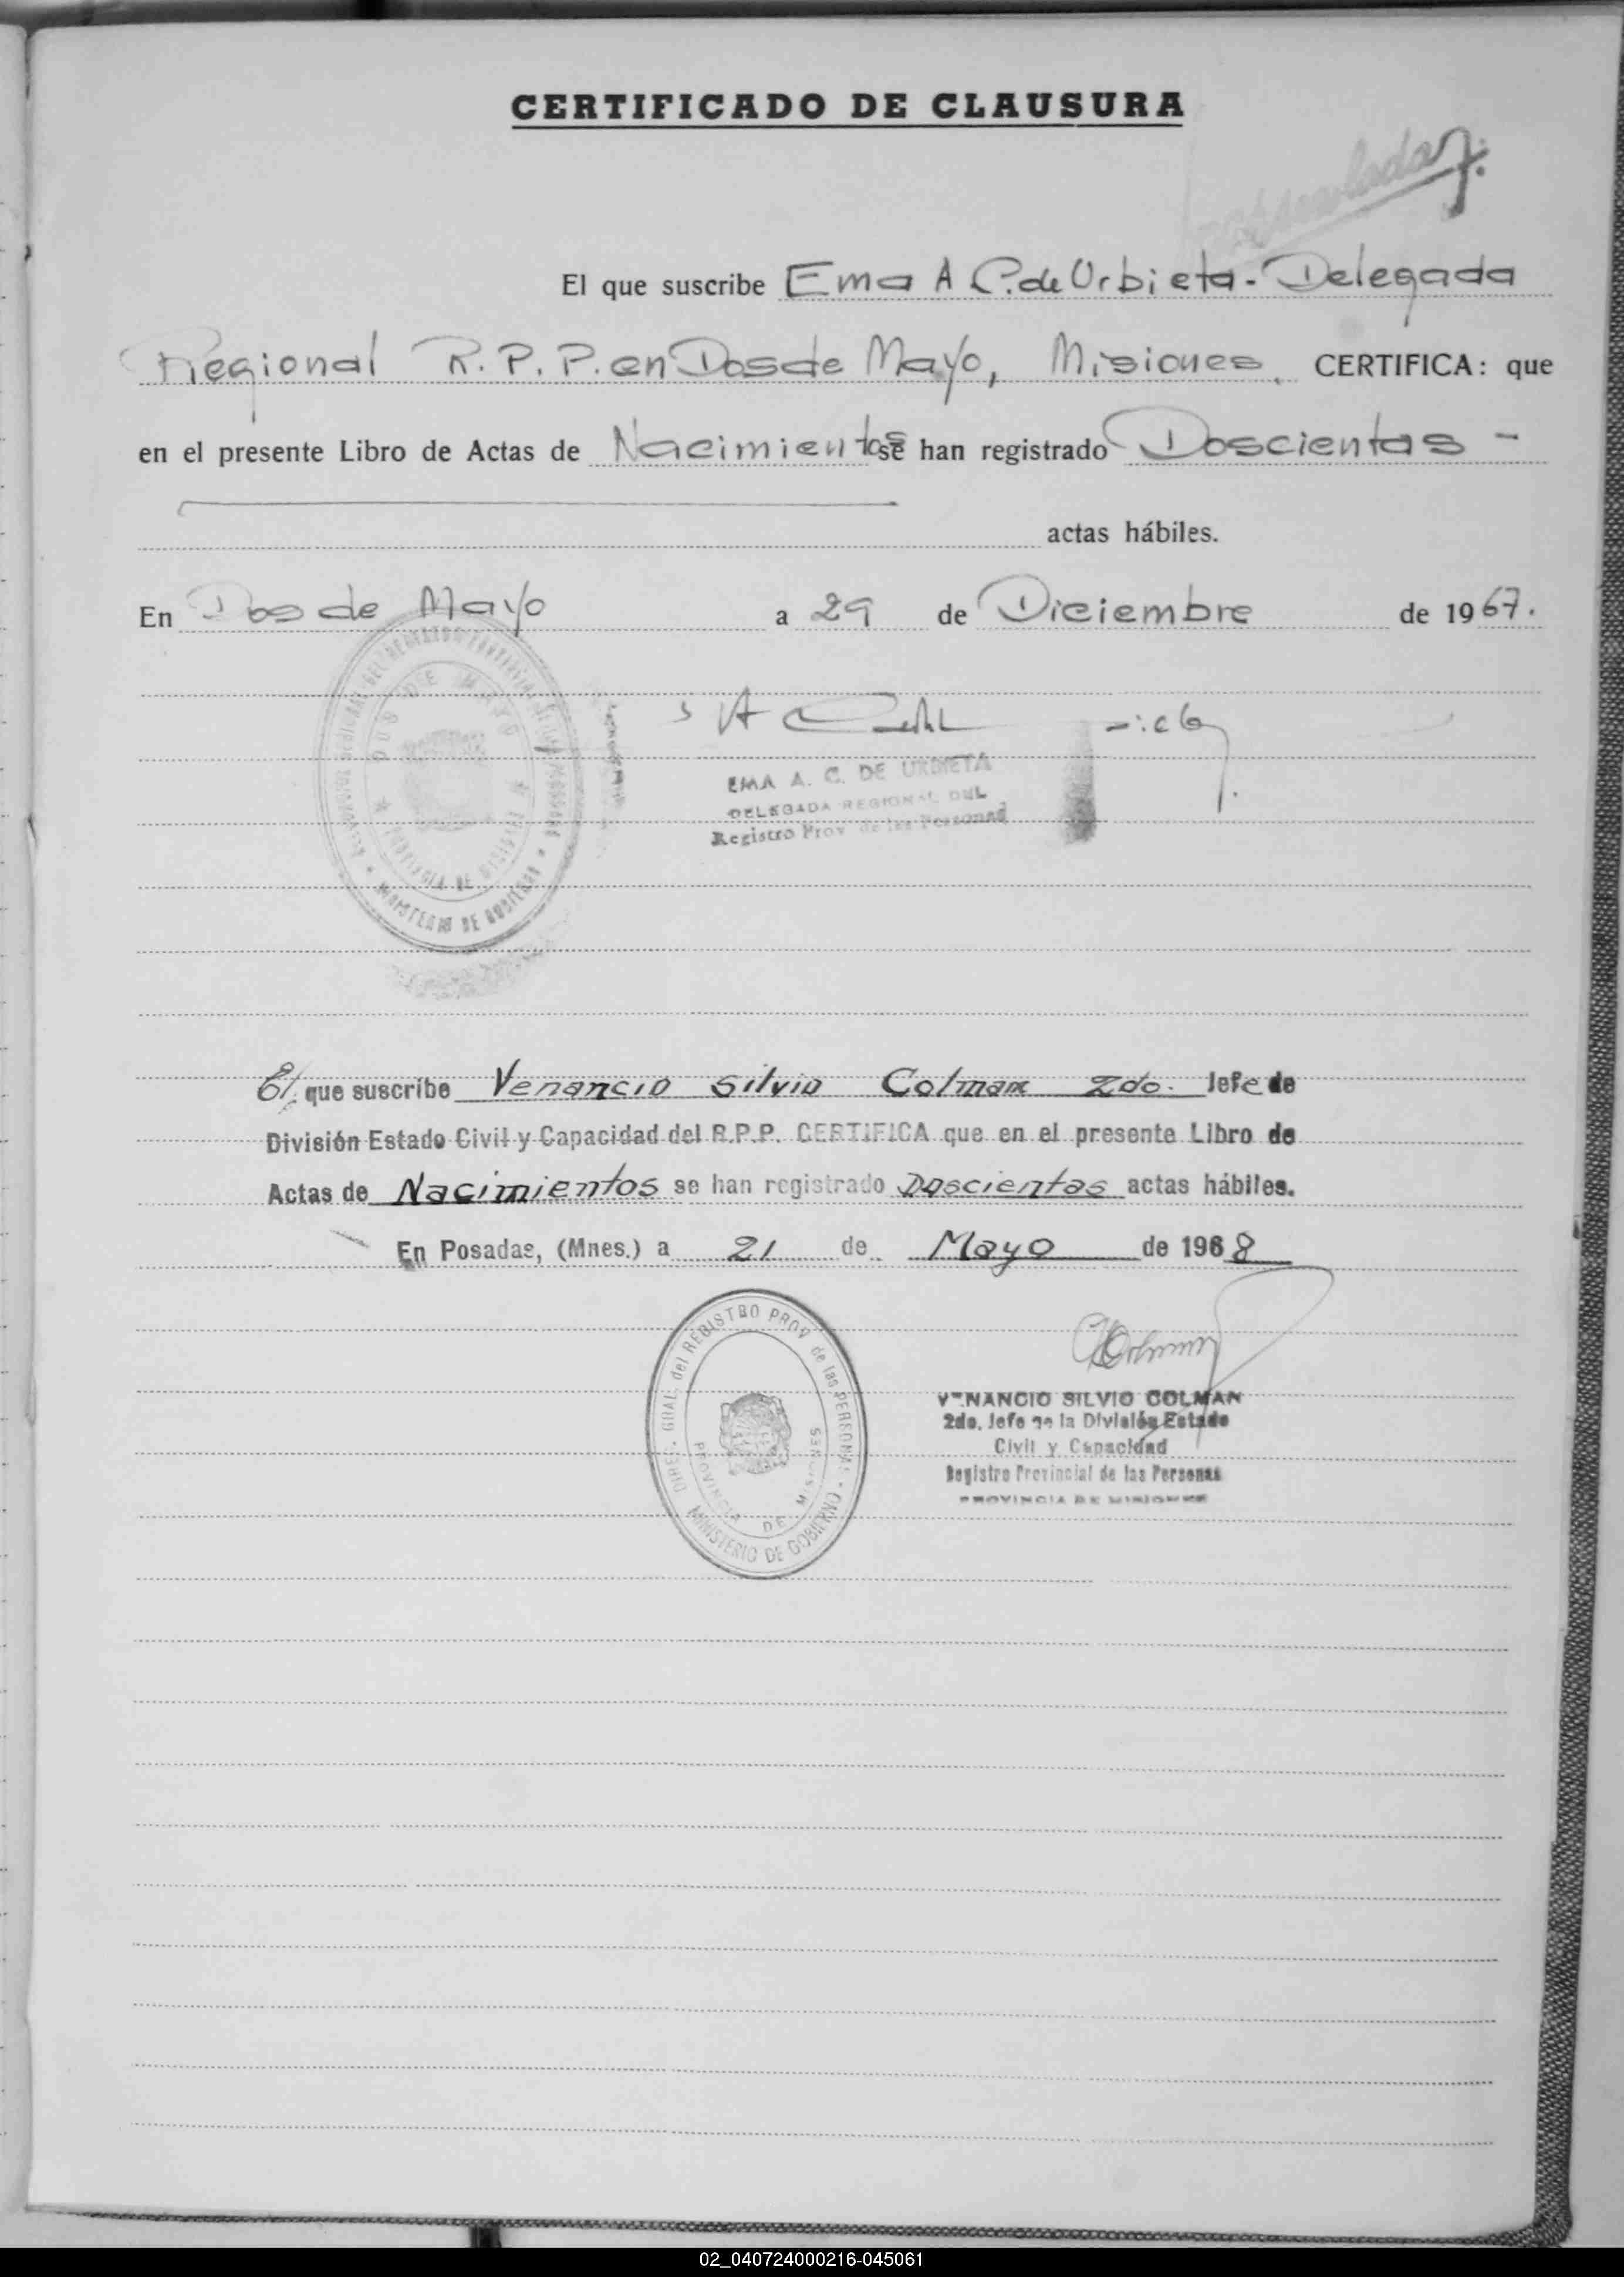 CERTIFICADO DE CLAUSURA
El que suscribe Ema A C. de Urbieta - Delegada
Regional R. P. P. en Dos de Mayo, Misiones. CERTIFICA: que
en el presente Libro de Actas de Nacimientos se han registrado Doscientas -
actas hábiles.
En Dos de Mayo a 29 de Diciembre de 1967.
DOS DE MAYO
PROVINCIA DE MISIONES
MINISTERIO DE GOBIERNO
EMA A. C. DE URBIETA
DELEGADA REGIONAL DEL
Registro Prov de las Personas
El que suscribe Venancio Silvio Colman 2do. Jefe de
División Estado Civil y Capacidad del R.P.P. CERTIFICA que en el presente Libro de
Actas de Nacimientos se han registrado Doscientas actas hábiles.
En Posadas, (Mnes.) a 21 de Mayo de 1968
DIREC. GRAL. del REGISTRO PROV de las PERSONAS
MINISTERIO DE GOBIERNO
PROVINCIA DE MISIONES
VENANCIO SILVIO COLMAN
2do. Jefe de la División Estado
Civil y Capacidad
Registro Provincial de las Personas
PROVINCIA DE MISIONES
02_040724000216-045061